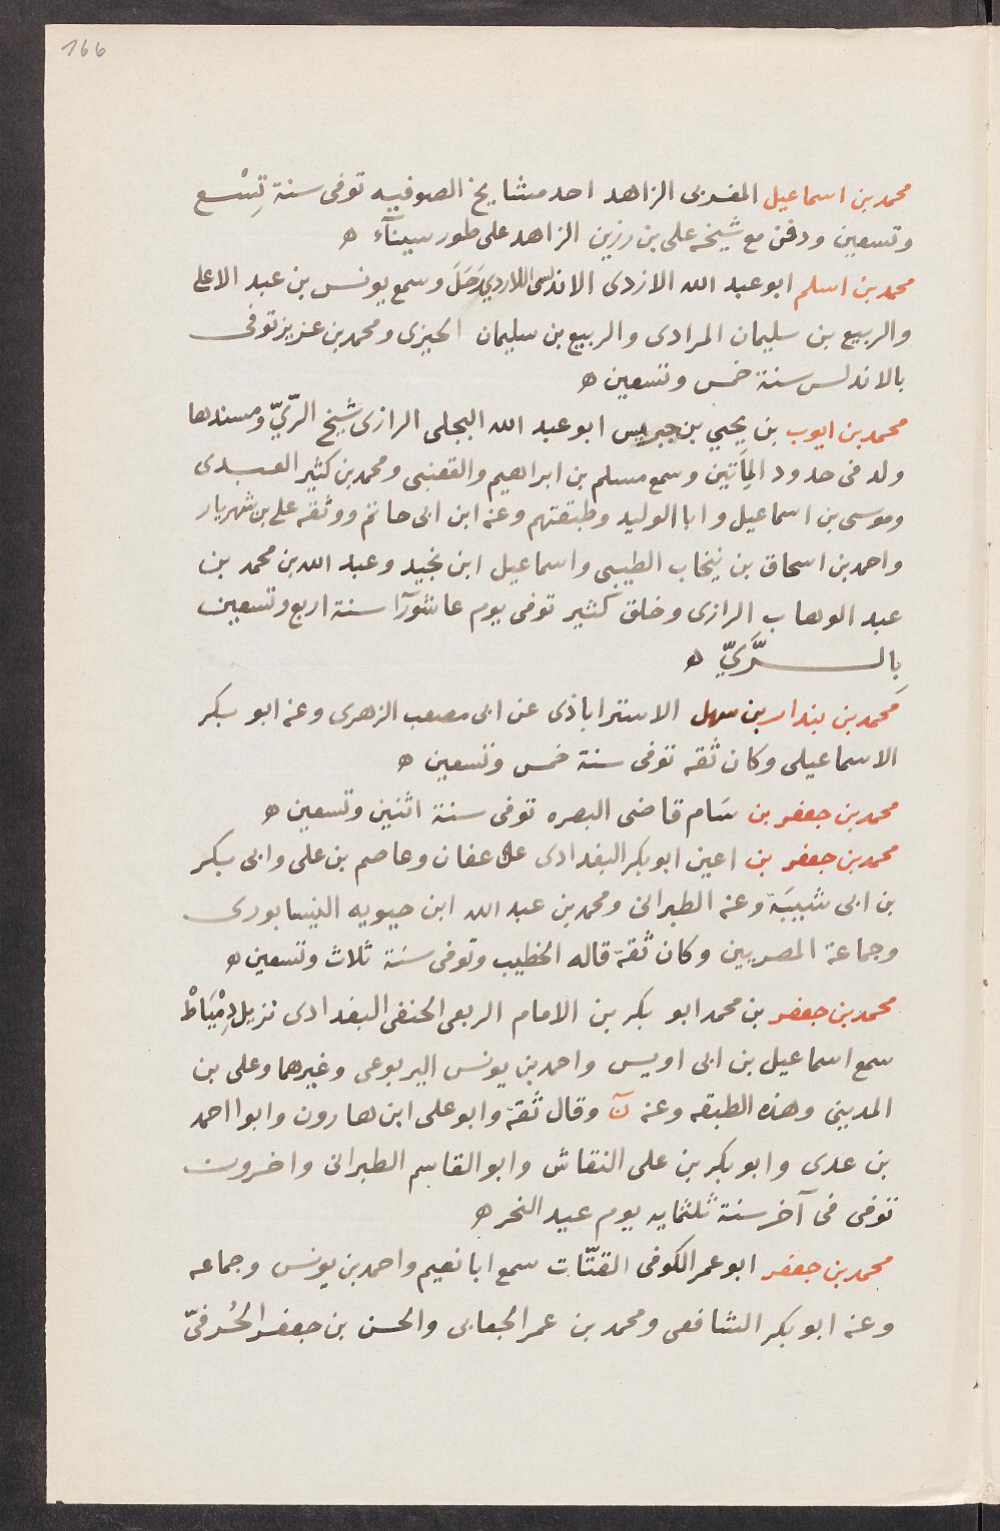 166
محمد بن اسماعيل المغربى الزاهد احد مشايخ الصوفيه توفى سنة تِسْع
وتسعين ودفن مع شيخه على بن رزين الزاهد على طور سينآء ه
محمد بن اسلم ابو عبد الله الازدى الاندلسى اللاردي رَحَلَ وسمع يونس بن عبد الاعلى
والربيع بن سليمان المرادى والربيع بن سليمان الجيزى ومحمد بن عزيز توفى
بالاندلس سنة خمس وتسعين ه
محمد بن ايوب بن يحيي بن ابو عبد الله البجلى الرازى شيخ الرّيّ ومسندها
ولد فى حدود المِأتين وسمع مسلم بن ابراهيم والقعنبى ومحمد بن كثير العبدى
وموسى بن اسماعيل وابا الوليد وطبقتهم وعنه ابن ابى حاتم ووثقه على بن شهريار
واحمد بن اسحاق بن نيخاب الطيبى واسماعيل ابن نجيد وعبد الله بن محمد بن
عبد الوهاب الرازى وخلق كثير توفى يوم عاشورآ سنة اربع وتسعين
بِالرَّيّ ه
محَمد بن بندار بن سهل الاستراباذى عن ابى مصعب الزهرى وعنه ابو بكر
الاسماعيلى وكان ثقه توفى سنة خمس وتسعين ه
محمد بن جعفر بن سَام قاضى البصره توفى سنة اثنين وتسعين ه
محمد بن جعفر بن اعين ابو بكر البغدادى عن عفان وعاصم بن على وابى بكر
بن ابى شيبَة وعنه الطبرانى ومحمد بن عبد الله ابن حيويه النيسابورى
وجماعة المصريين وكان ثقة قاله الخطيب وتوفى سنة ثلاث وتسعين ه
محمد بن جعفر بن محمد ابو بكر بن الامام الربعى الحنفى البغدادى نزيل دِمْيَاطْ
سمع اسماعيل بن ابى اويس واحمد بن يونس اليربوعى وغيرهما وعلى بن
المدينى وهذه الطبقه وعنه نٓ وقال ثقة وابو على ابن هارون وابوا احمد
بن عدى وابو بكر بن على النقاش وابو القاسم الطبرانى واخرون
توفى فى آخر سنة ثلثمايه يوم عيد النحر ه
محمد بن جعفر ابو عمر الكوفى القتّات سمع ابا نعيم واحمد بن يونس وجماعه
وعنه ابو بكر الشافعى ومحمد بن عمر الجعابى والحسن بن جعفر الحُرفىّ